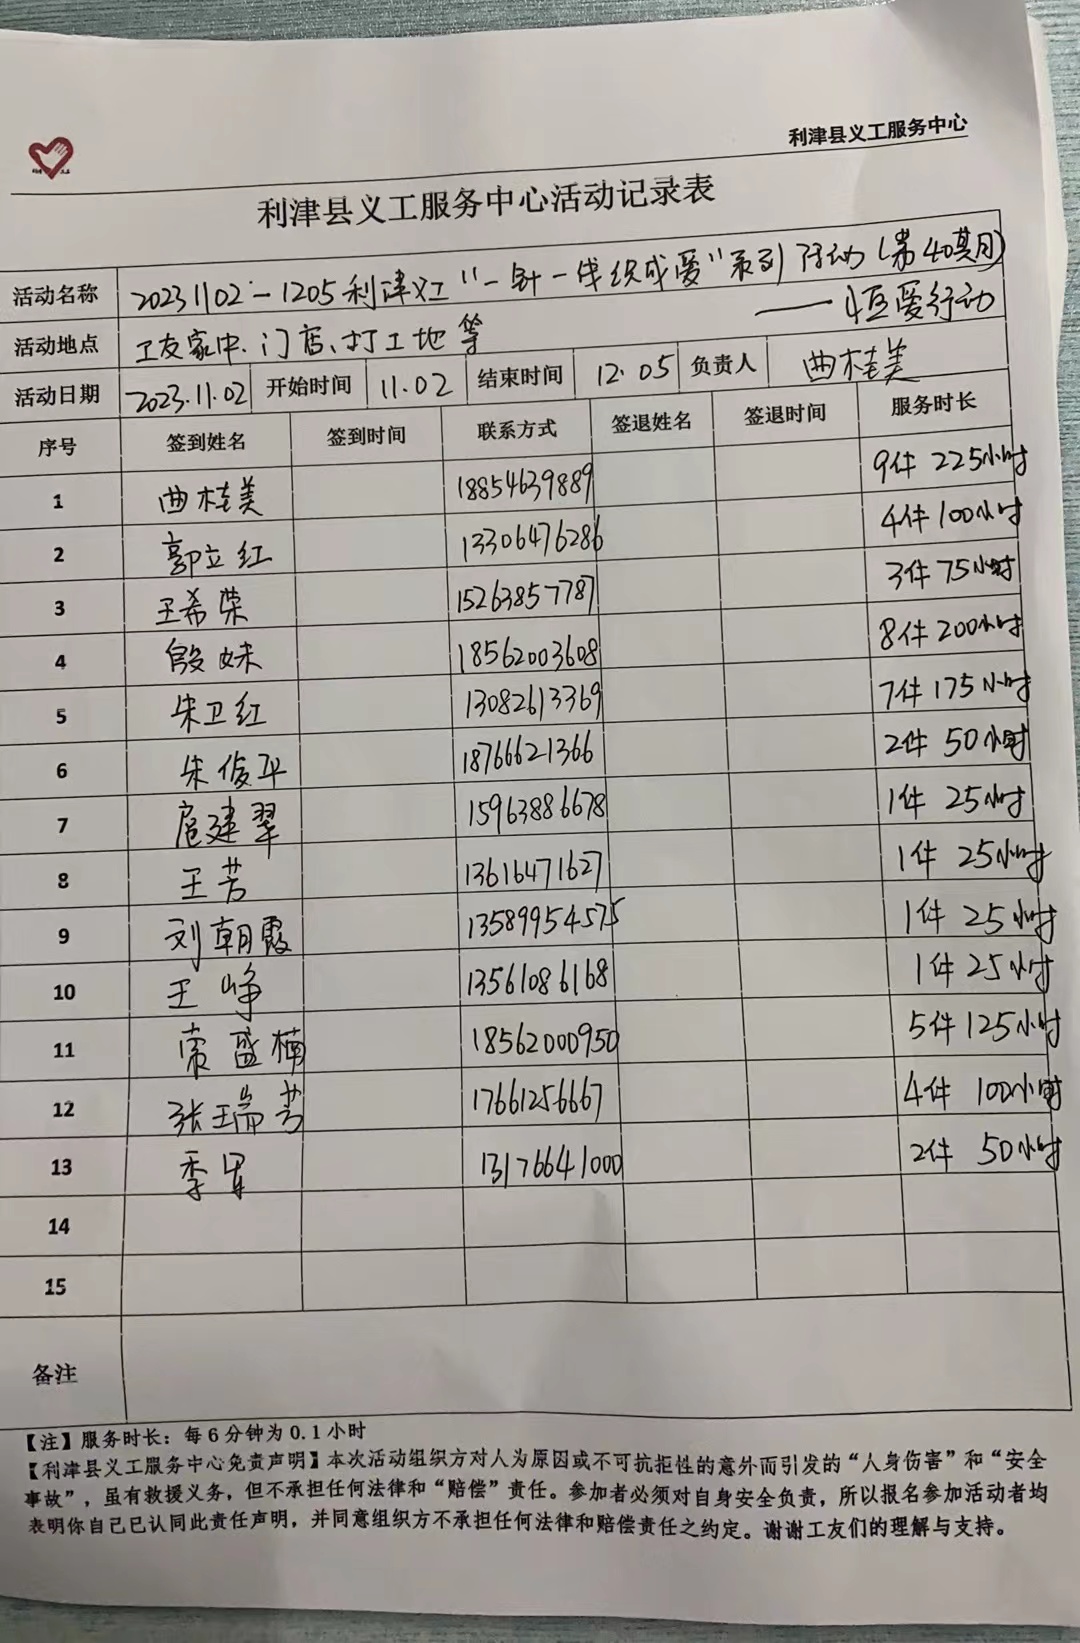 利津县义工服务中心
利津县义工服务中心活动记录表
活动名称 20231102-1205利津义工"一针一线织成爱"系列活动(第40期)
——恒爱行动
活动地点 工友家中、门店、打工地等
活动日期 2023.11.02 开始时间 11.02 结束时间 12.05 负责人 曲桂美
序号 签到姓名 签到时间 联系方式 签退姓名 签退时间 服务时长
1 曲桂美 18854639889 9件 225小时
2 郭立红 13306476286 4件 100小时
3 王希荣 15263857787 3件 75小时
4 殷妹 18562003608 8件 200小时
5 朱卫红 13082613369 7件 175小时
6 朱俊平 18766621366 2件 50小时
7 扈建翠 15963886678 1件 25小时
8 王芳 13616471627 1件 25小时
9 刘朝霞 13589954575 1件 25小时
10 王峥 13561086168 1件 25小时
11 盛楠 18562000950 5件 125小时
12 张瑞芳 17661256667 4件 100小时
13 季军 13176641000 2件 50小时
14
15
备注
【注】服务时长：每6分钟为0.1小时
【利津县义工服务中心免责声明】本次活动组织方对人为原因或不可抗拒性的意外而引发的“人身伤害”和“安全
事故”，虽有救援义务，但不承担任何法律和“赔偿”责任。参加者必须对自身安全负责，所以报名参加活动者均
表明你自己已认同此责任声明，并同意组织方不承担任何法律和赔偿责任之约定。谢谢工友们的理解与支持。